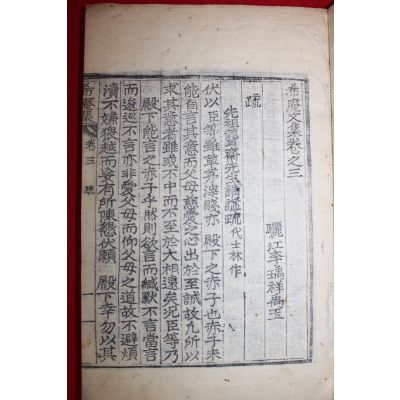 希庵文集卷之三
驪江李瑀祥禹玉
疏
先祖晦齋先生請諡疏代士林作
伏以臣等雖草茅滓賤亦 殿下之赤子也赤子未
能有言其意而父母慈愛之心出於至誠故凡所以
求其意者雖或不中而不至於大相遠矣况臣等乃
殿下能言之赤子乎然則欲言而緘默不言當言
而逡巡不言亦非愛父母而仰父母之道故不避煩
瀆不嫌猥越而妄有所陳懇伏願 殿下幸勿以其
希庵集 卷三 疏 一